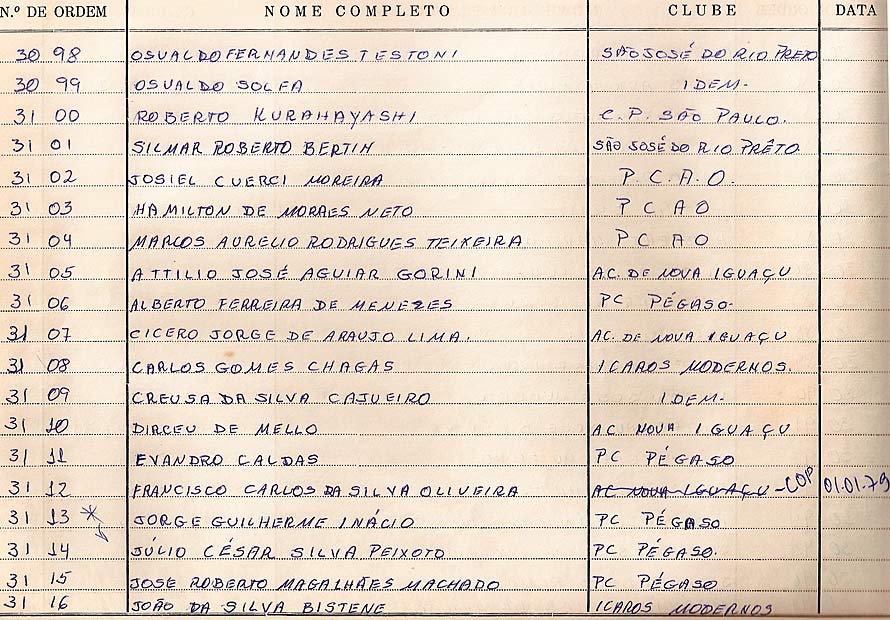 N.º DE ORDEM NOME COMPLETO CLUBE DATA
30 98 OSVALDO FERNANDES TESTONI SÃO JOSÉ DO RIO PRETO
30 99 OSVALDO SOLFA IDEM-
31 00 ROBERTO KURAHAYASHI C.P. SÃO PAULO.
31 01 SILMAR ROBERTO BERTIN SÃO JOSÉ DO RIO PRÊTO.
31 02 JOSIEL CUERCI MOREIRA P.C.A.O.
31 03 HAMILTON DE MORAES NETO P C A O
31 04 MARCOS AURELIO RODRIGUES TEIXEIRA P C A O
31 05 ATTILIO JOSÉ AGUIAR GORINI AC. DE NOVA IGUAÇU
31 06 ALBERTO FERREIRA DE MENEZES PC PÉGASO-
31 07 CICERO JORGE DE ARAUJO LIMA. AC. DE NOVA IGUAÇU
31 08 CARLOS GOMES CHAGAS ICAROS MODERNOS.
31 09 CREUSA DA SILVA CAJUEIRO IDEM-
31 10 DIRCEU DE MELLO AC NOVA IGUAÇU
31 11 EVANDRO CALDAS PC PÉGASO
31 12 FRANCISCO CARLOS DA SILVA OLIVEIRA AC NOVA IGUAÇU -COP 01.01.79
31 13 * JORGE GUILHERME INÁCIO PC PÉGASO
31 14 JÚLIO CÉSAR SILVA PEIXOTO PC PÉGASO.
31 15 JOSE ROBERTO MAGALHÃES MACHADO PC PÉGASO
31 16 JOÃO DA SILVA BISTENE ICAROS MODERNOS